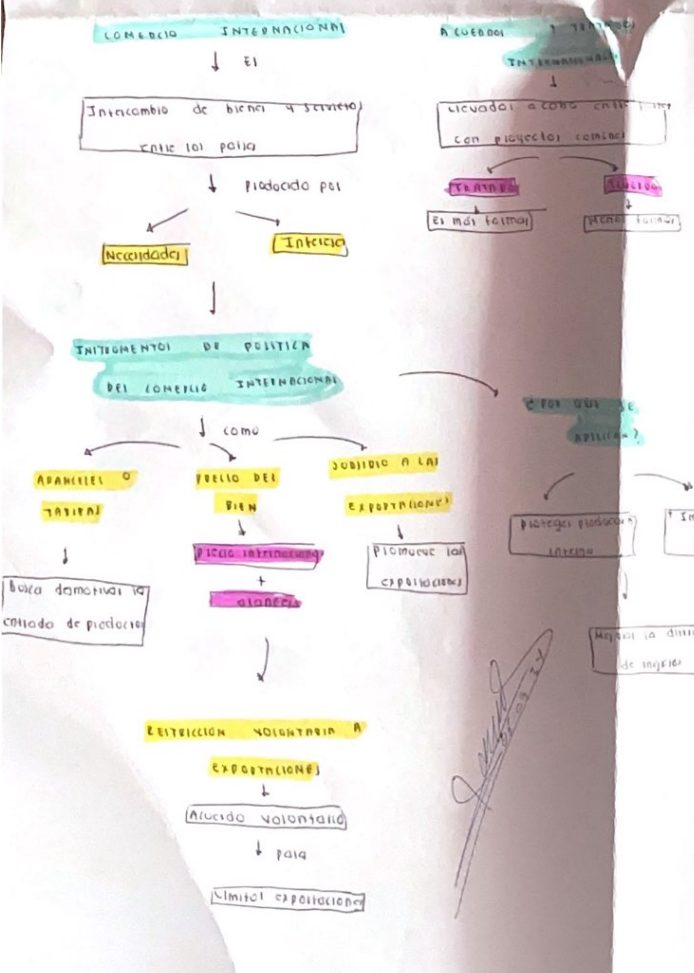 COMERCIO INTERNACIONAL
ES
Intercambio de bienes y servicios
entre los países
producido por
Necesidades
Interés
INSTRUMENTOS DE POLITICA
DEL COMERCIO INTERNACIONAL
como
ARANCELES O
TARIFAS
busca desmotivar la
entrada de productos
PRECIO DEL
BIEN
precio internacional
+
arancel
SUBSIDIO A LAS
EXPORTACIONES
Promueve las
exportaciones
RESTRICCION VOLONTARIA A
EXPORTACIONES
Acuerdo volontario
para
Limitar exportaciones
ACUERDOS Y TRATADOS
INTERNACIONALES
Llevados a cabo entre
con proyectos comunes
TRATADO
Es más formal
ACUERDO
Menos formal
¿POR QUÉ SE
APLICAN?
proteger producción
interna
Mejorar la
de ingresos